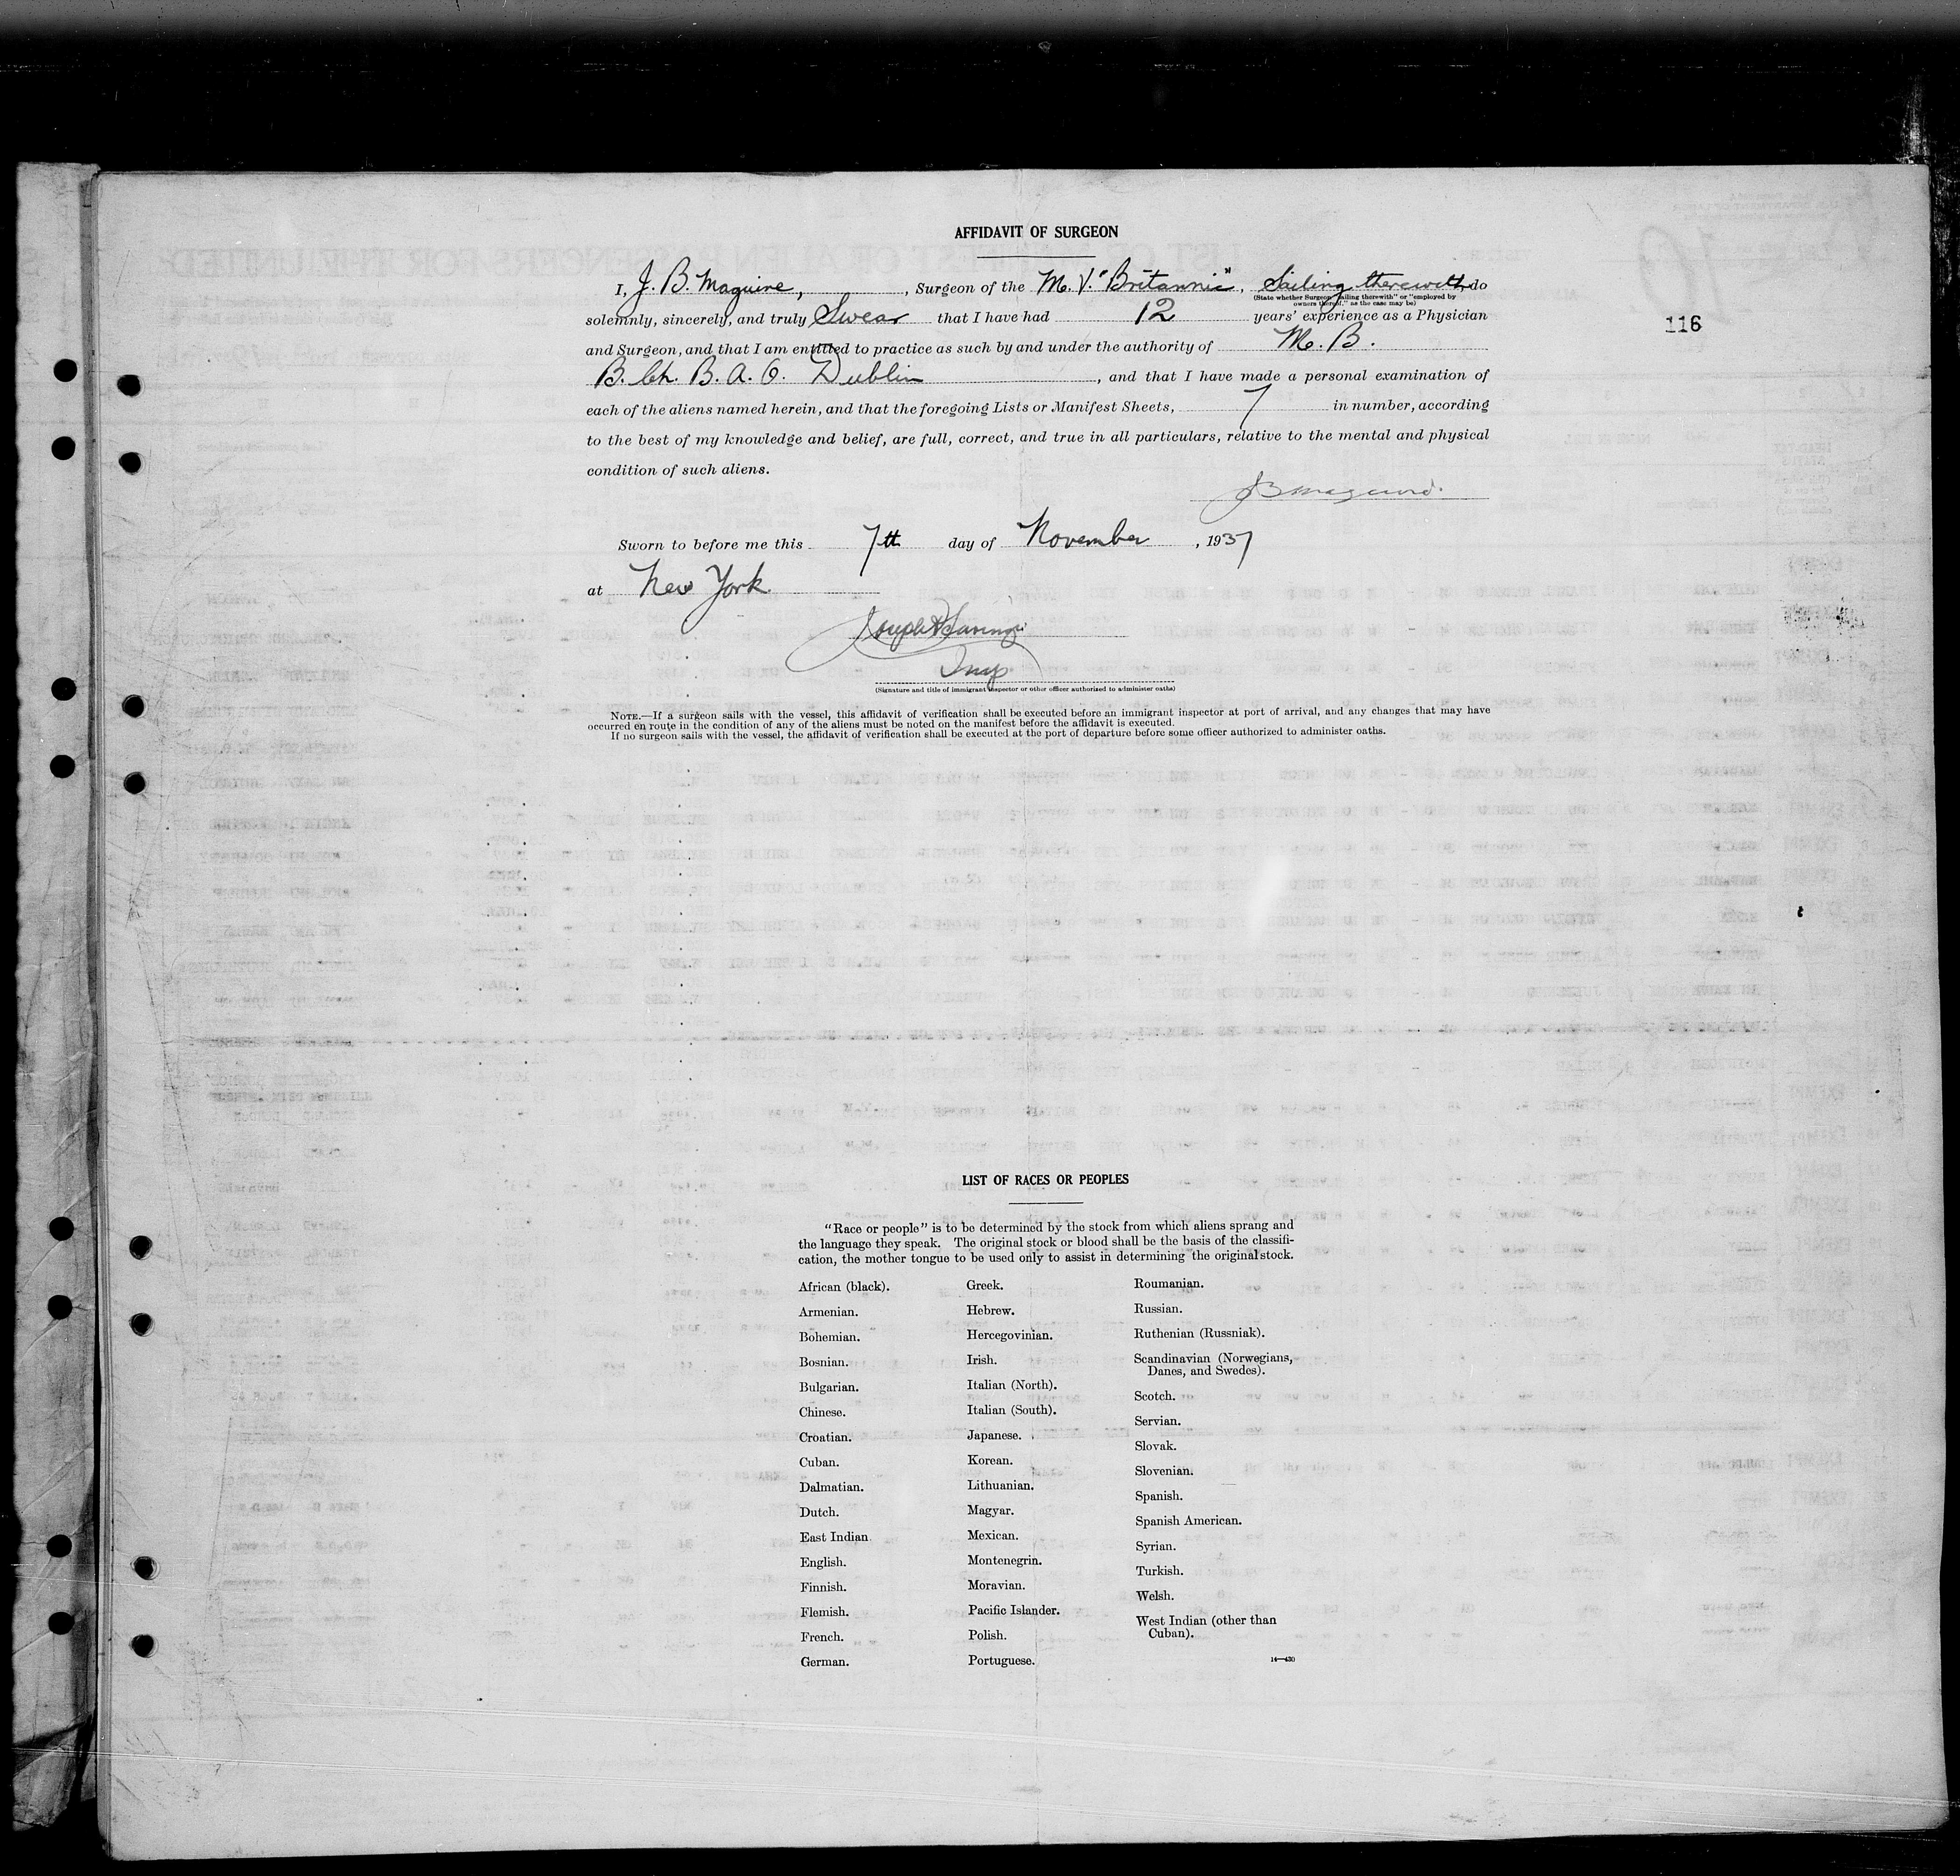 AFFIDAVIT OF SURGEON
I, J. B. Maguire, , Surgeon of the M. V. "Britannic", Sailing therewith, do
(State whether Surgeon "sailing therewith" or "employed by
owners thereof," as the case may be)
116
solemnly, sincerely, and truly Swear that I have had 12 years' experience as a Physician
and Surgeon, and that I am entitled to practice as such by and under the authority of M. B.
B. Ch. B. A. O. Dublin , and that I have made a personal examination of
each of the aliens named herein, and that the foregoing Lists or Manifest Sheets, 7 in number, according
to the best of my knowledge and belief, are full, correct, and true in all particulars, relative to the mental and physical
condition of such aliens.
J B Maguire.
Sworn to before me this 7th day of November , 1937
at New York
Joseph
Insp
(Signature and title of immigrant inspector or other officer authorized to administer oaths)
NOTE.—If a surgeon sails with the vessel, this affidavit of verification shall be executed before an immigrant inspector at port of arrival, and any changes that may have
occurred en route in the condition of any of the aliens must be noted on the manifest before the affidavit is executed.
If no surgeon sails with the vessel, the affidavit of verification shall be executed at the port of departure before some officer authorized to administer oaths.
LIST OF RACES OR PEOPLES
"Race or people" is to be determined by the stock from which aliens sprang and
the language they speak. The original stock or blood shall be the basis of the classifi-
cation, the mother tongue to be used only to assist in determining the original stock.
African (black).
Armenian.
Bohemian.
Bosnian.
Bulgarian.
Chinese.
Croatian.
Cuban.
Dalmatian.
Dutch.
East Indian
English.
Finnish.
Flemish.
French.
German.
Greek.
Hebrew.
Hercegovinian.
Irish.
Italian (North).
Italian (South).
Japanese.
Korean.
Lithuanian.
Magyar.
Mexican.
Montenegrin.
Moravian.
Pacific Islander.
Polish.
Portuguese.
Roumanian.
Russian.
Ruthenian (Russniak).
Scandinavian (Norwegians,
Danes, and Swedes).
Scotch.
Servian.
Slovak.
Slovenian.
Spanish.
Spanish American.
Syrian.
Turkish.
Welsh.
West Indian (other than
Cuban).
14—430